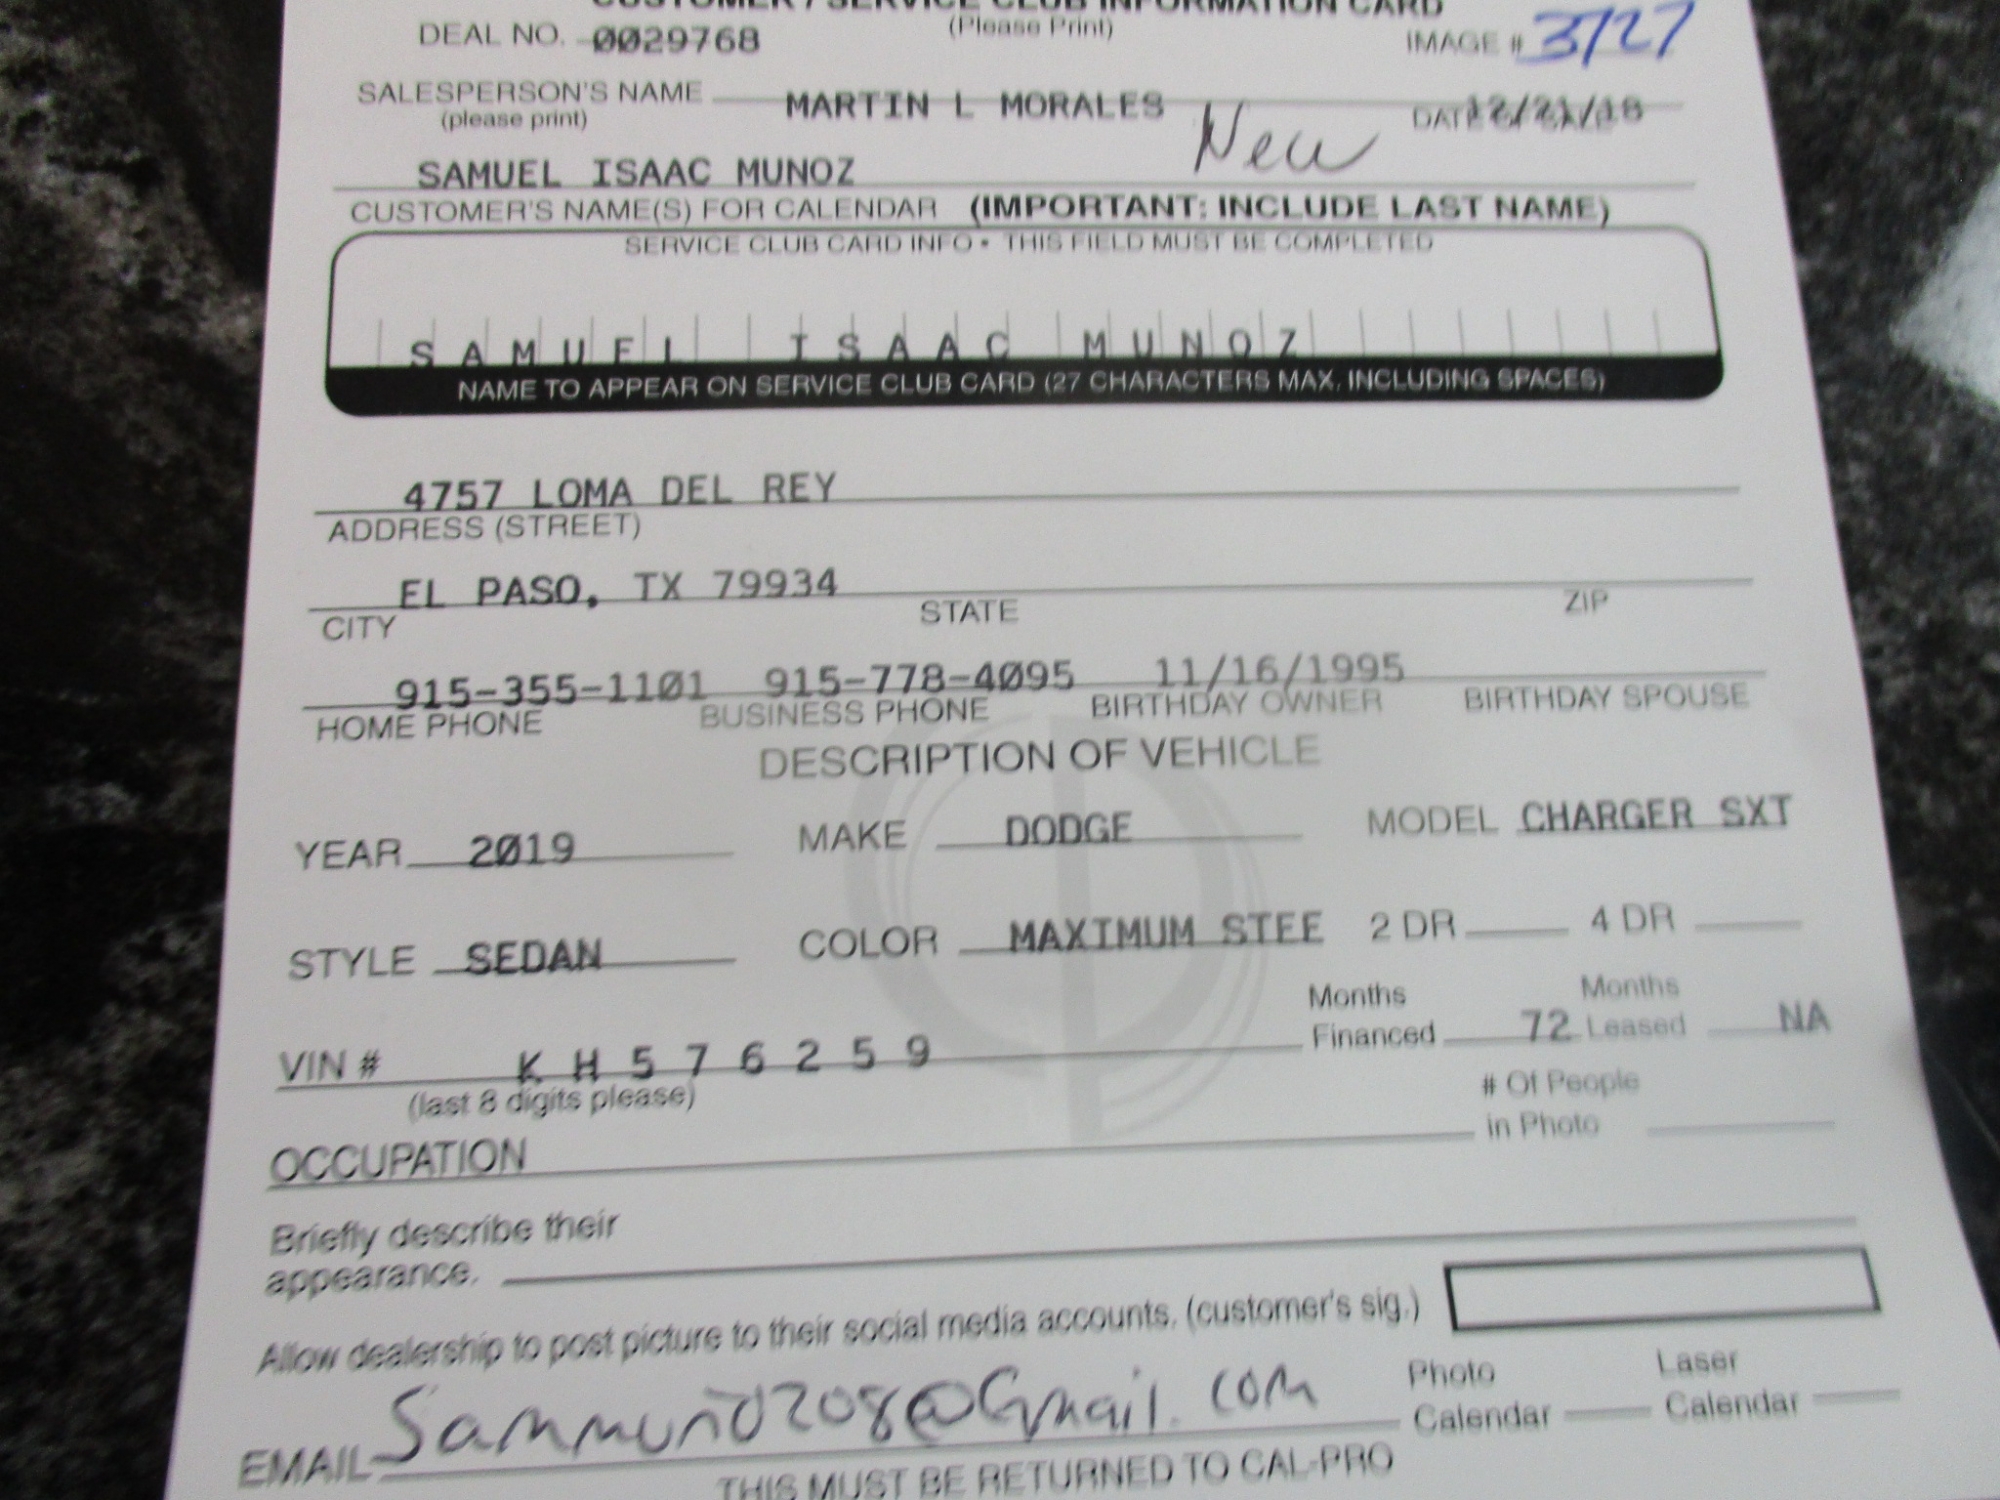 CUSTOMER / SERVICE CLUB INFORMATION CARD
(Please Print)
DEAL NO. 0029768 IMAGE # 3727
SALESPERSON'S NAME MARTIN L MORALES
(please print)
New
SAMUEL ISAAC MUNOZ
CUSTOMER'S NAME(S) FOR CALENDAR (IMPORTANT: INCLUDE LAST NAME)
SERVICE CLUB CARD INFO • THIS FIELD MUST BE COMPLETED
SAMUEL ISAAC MUNOZ
NAME TO APPEAR ON SERVICE CLUB CARD (27 CHARACTERS MAX, INCLUDING SPACES)
4757 LOMA DEL REY
ADDRESS (STREET)
EL PASO, TX 79934
CITY STATE ZIP
915-355-1101 915-778-4095 11/16/1995
HOME PHONE BUSINESS PHONE BIRTHDAY OWNER BIRTHDAY SPOUSE
DESCRIPTION OF VEHICLE
YEAR 2019 MAKE DODGE MODEL CHARGER SXT
STYLE SEDAN COLOR MAXIMUM STEE 2 DR 4 DR
Months Financed 72 Months Leased NA
VIN # K H 5 7 6 2 5 9
(last 8 digits please)
# Of People
in Photo
OCCUPATION
Briefly describe their
appearance.
Allow dealership to post picture to their social media accounts. (customer's sig.)
Photo Calendar Laser Calendar
EMAIL @Gmail.com
THIS MUST BE RETURNED TO CAL-PRO